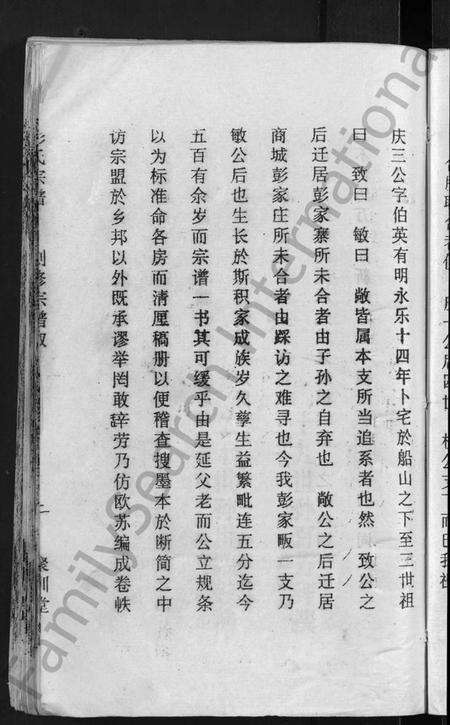 庆三公字伯英有明永乐十四年卜宅於船山之下至三世祖
曰 致曰 敏曰 敞皆属本支所当追系者也然 致公之
后迁居彭家寨所未合者由子孙之自弃也 敞公之后迁居
商城彭家庄所未合者由踩访之难寻也今我彭家畈一支乃
敏公后也生长於斯积家成族岁久孳生益繁毗连五分迄今
五百有余岁而宗谱一书其可缓乎由是延父老而公立规条
以为标准命各房而清厘稿册以便稽查搜墨本於断简之中
访宗盟於乡邦以外既承谬举罔敢辞劳乃仿欧苏编成卷帙
氏宗谱 创修宗谱叙 二 聚训堂
FamilySearch International